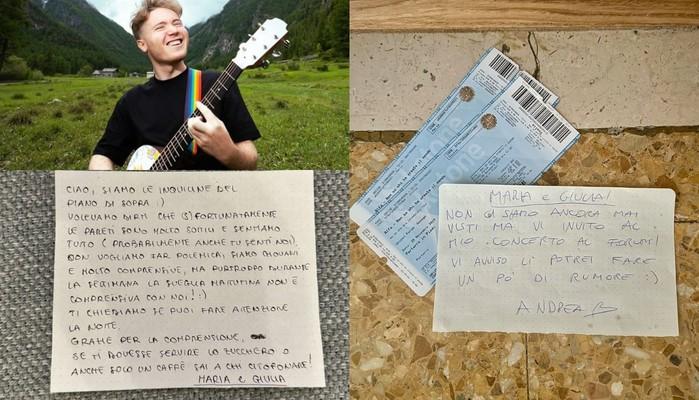 CIAO, SIAMO LE INQUILINE DEL
PIANO DI SOPRA :)
VOLEVAMO DIRTI CHE (S)FORTUNATAMENTE
LE PARETI SONO MOLTO SOTTILI E SENTIAMO
TUTTO (PROBABILMENTE ANCHE TU SENTI NOI).
NON VOGLIAMO FAR POLEMICA, SIAMO GIOVANI
E MOLTO COMPRENSIVE, MA PURTROPPO DURANTE
LA SETTIMANA LA SVEGLIA MATTUTINA NON È
COMPRENSIVA CON NOI! :)
TI CHIEDIAMO SE PUOI FARE ATTENZIONE
LA NOTTE.
GRAZIE PER LA COMPRENSIONE,
SE TI DOVESSE SERVIRE LO ZUCCHERO O
ANCHE SOLO UN CAFFÈ SAI A CHI CITOFONARE!
MARIA E GIULIA
MARIA E GIULIA!
NON CI SIAMO ANCORA MAI
VISTI MA VI INVITO AL
MIO CONCERTO AL FORUM!
VI AVVISO LÌ POTREI FARE
UN PO' DI RUMORE :)
ANDREA